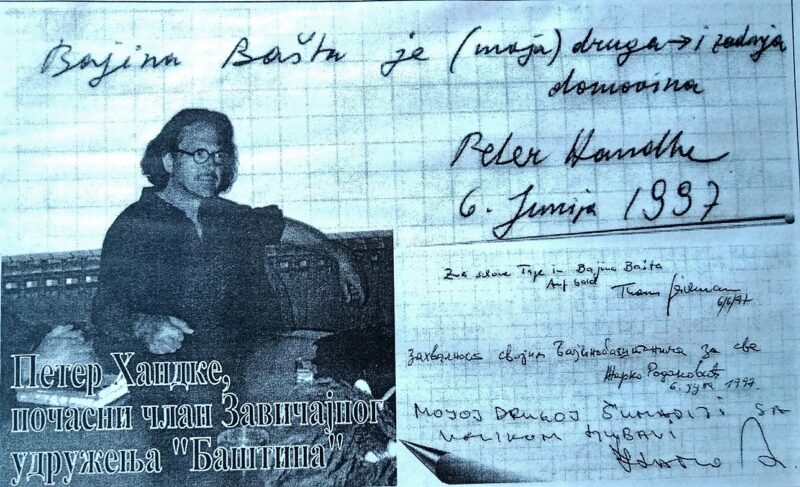 Bajina Bašta je (moja) druga → i zadnja
domovina
Peter Handke
6. Junija 1997
Zwei schöne Tage in Bajina Bašta
Auf bald
6/6/97
захвалност својим Бајинобаштанима за све
Жарко Радаковић
6. јуна 1997.
MOJOJ DRUGOJ ŠUMADIJI SA
VELIKOM LJUBAVI
Петер Хандке,
почасни члан Завичајног
удружења "Баштина"